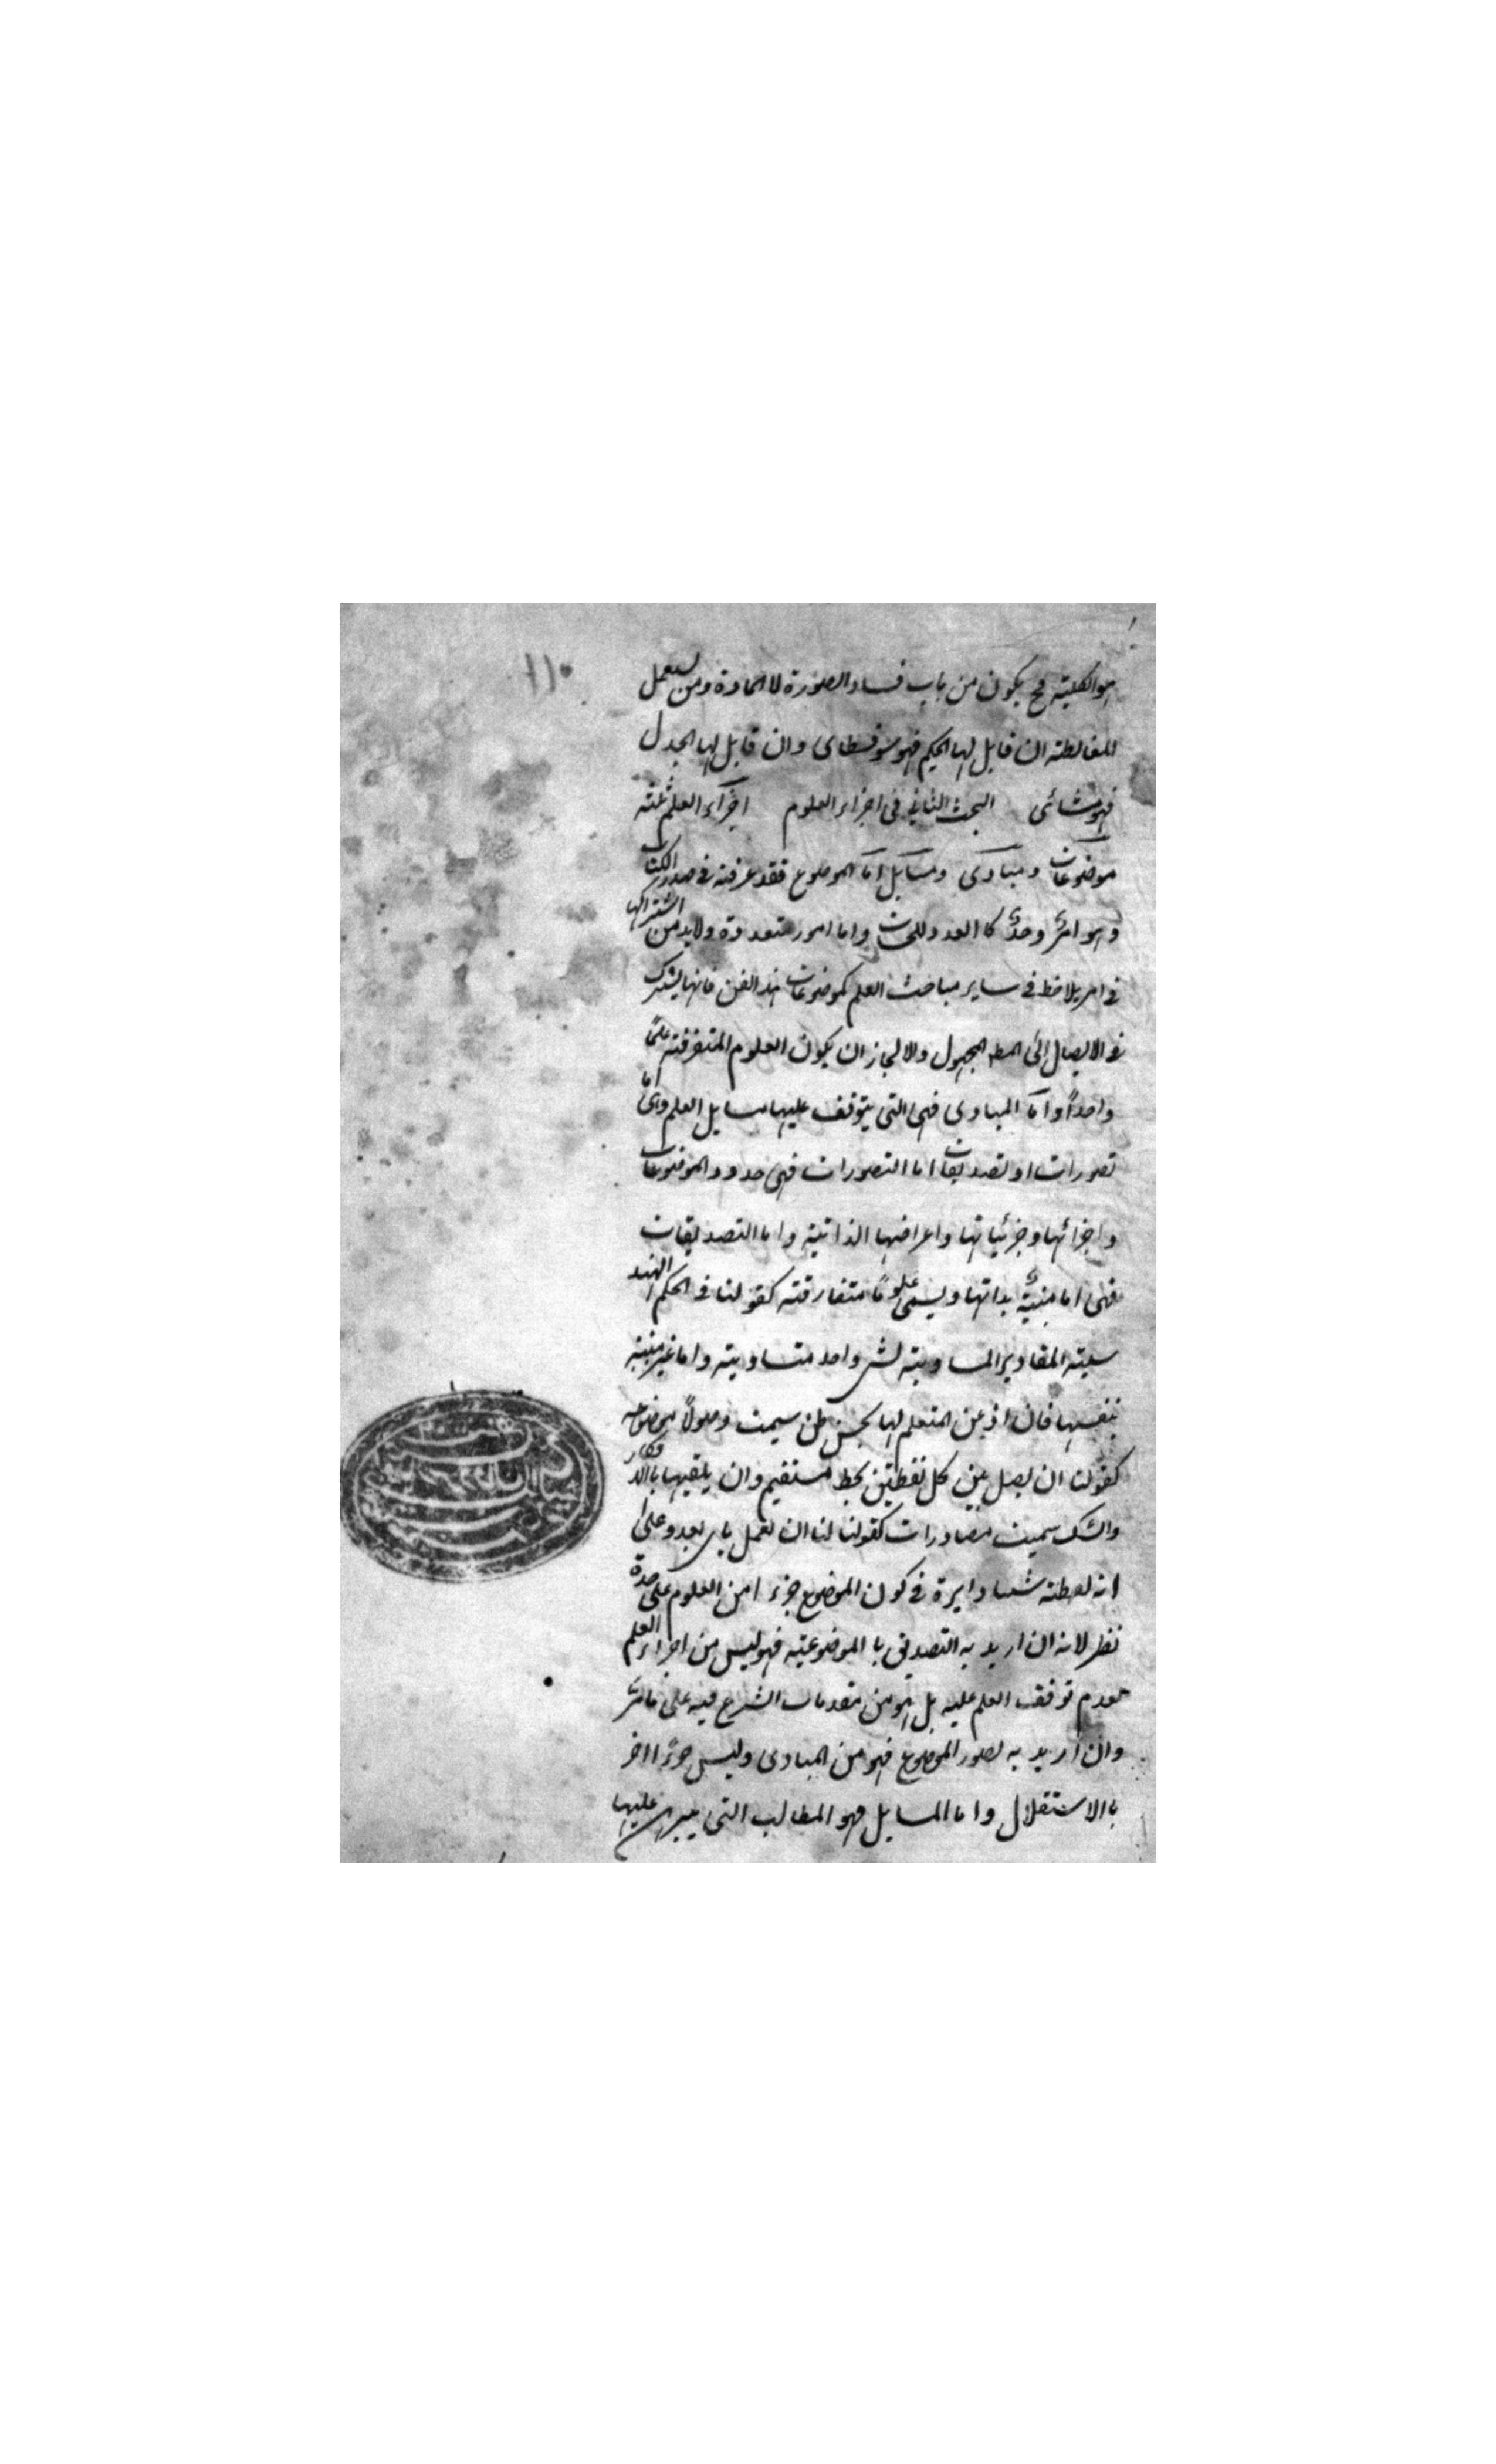 ١١٠
هو الكلية فح يكون من باب فساد الصورة لا المادة ومن يستعمل
المغالطة ان قابل بها الحكيم فهو سوفسطاى وان قابل بها الجدل
فهو مشائى البحث الثانى فى اجزاء العلوم اجزآء العلم ثلثة
موضوعات ومبادى ومسايل امّا الموضوع فقد عرفته فى صدر الكتاب
وهو امّا امرٌ واحدٌ كالعدد للحساب واما امور متعددة ولابد من اشتراكها
فى امر يلاحظ فى ساير مباحث العلم كموضوعات هذا الفن فانها يشترك
فى الايصال الى المط المجهول والا لجاز ان يكون العلوم المتفرقة علمًا
واحداً وامّا المبادى فهى التى يتوقف عليها مسايل العلم وهى اما
تصورات او تصديقات اما التصورات فهى حدود الموضوعات
واجزائها وجزئياتها واعراضها الذاتية واما التصديقات
فهى اما بينة بذاتها ويسمى علومًا متفارقة كقولنا فى الحكم الهند
سية المقادير المساوية لشى واحد متساوية واما غير بينة
بنفسها فان اذعن المتعلم لها بحسن ظن سميت وصولاً موضوعه
كقولنا ان يصل بين كل نقطتين بخط مستقيم وان يلقيها باالانكار
والشك سميت مصادرات كقولنا لنا ان نعمل باى بعد وعلى
اى نقطة شيئا دايرة فى كون الموضوع جزء امن العلوم على حدة
نظر لانه ان اريد به التصديق با الموضوعية فهو ليس من اجزاء العلم
لعدم توقف العلم عليه بل هو من مقدمات الشرع فيه على ما مرّ
وان اريد به تصور الموضوع فهو من المبادى وليس جزءًا اخر
باالاستقلال واما المسايل فهو المطالب التى يبرهن عليها